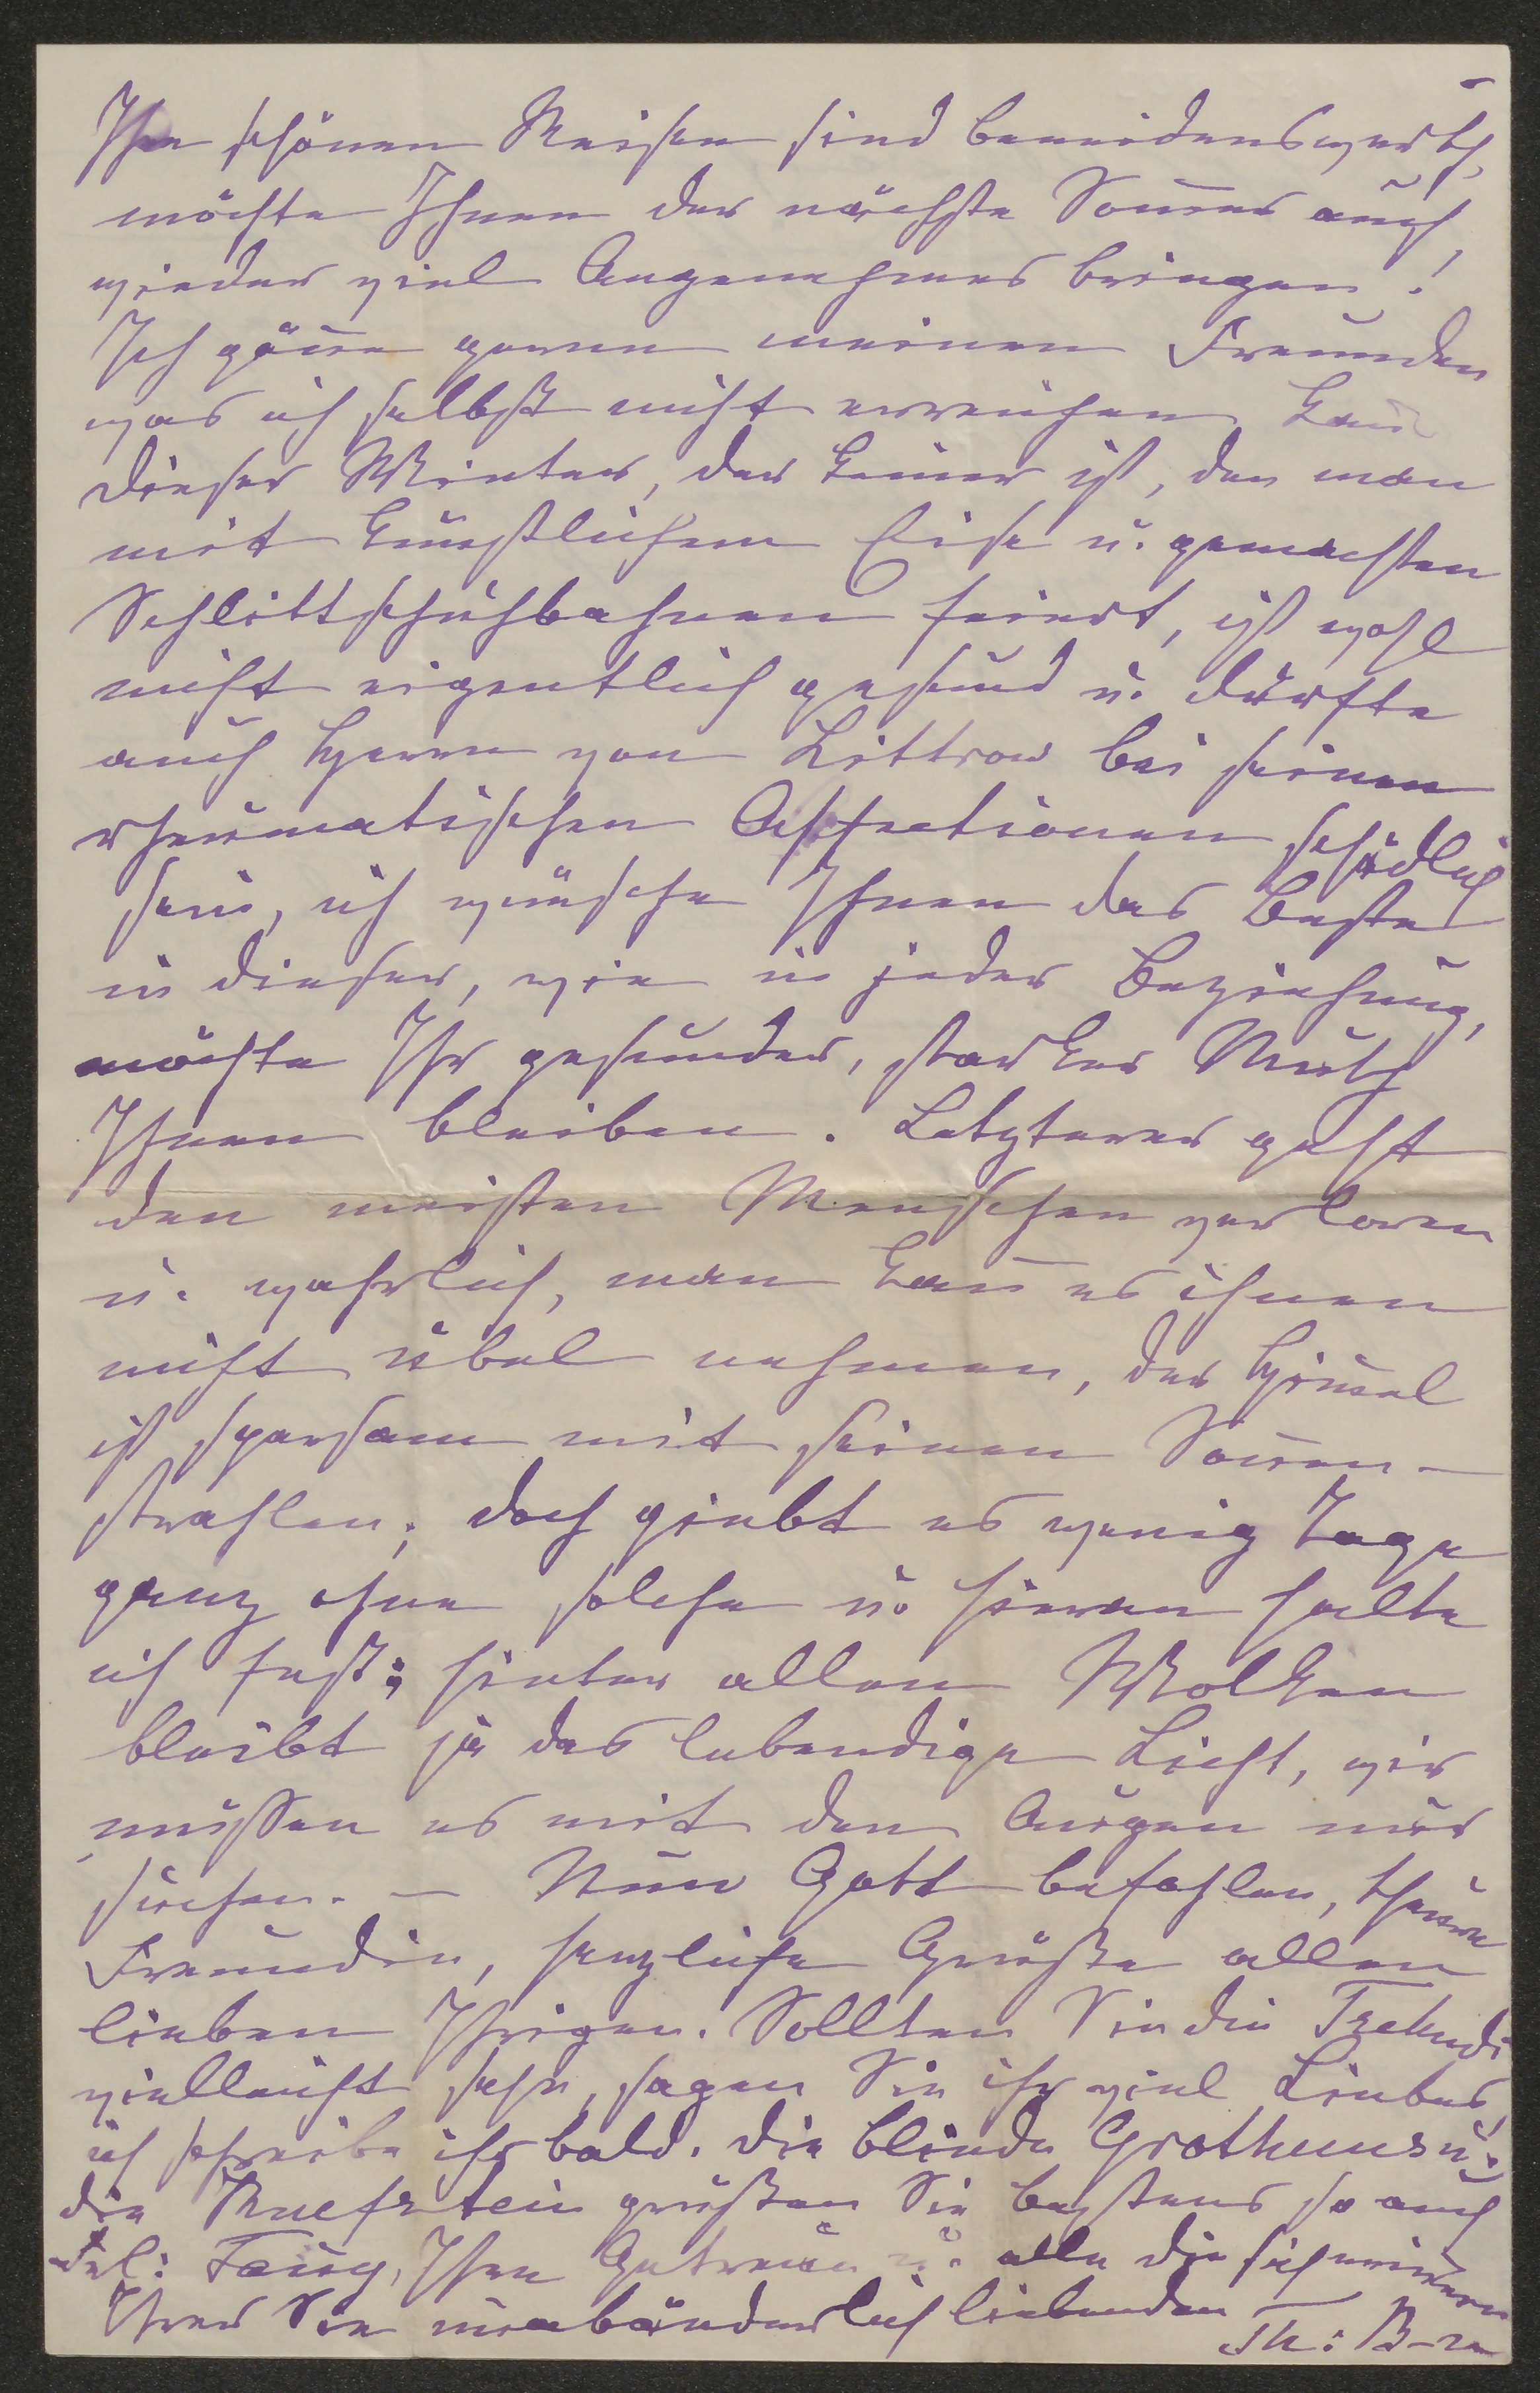 Ihre schönen Reisen sind beneidenswerth,
möchte Ihnen der nächste Som̅er auch
wieder viel Angenehmes bringen!
Ich gön̅e gerne meinen Freunden
was ich selbst nicht erreichen kan̅
dieser Winter, der keiner ist, den man
mit künstlichem Eise u. gemachten
Schlittschuhbahnen feiert, ist wohl
nicht eigentlich gesund u. dürfte
auch Herrn von Littrow bei seinen
rheumatischen Affectionen schädlich
sein, ich wünsche Ihnen das Beste
in dieser, wie in jeder Beziehung,
möchte Ihr gesunder, starker Muth
Ihnen bleiben. Letzterer geht
den meisten Menschen verloren
u. wahrlich, man kan̅ es ihnen
nicht übel nehmen, der Him̅el
ist sparsam mit seinen Son̅en-
strahlen; doch giebt es wenig Tage
ganz ohne solche u. hieran halte
ich fest; hinter allen Wolken
bleibt ja das lebendige Licht, wir
müssen es mit den Augen nur
suchen. — Nun Gott befohlen, theure
Freundin, herzliche Grüße allen
lieben Ihrigen. Sollten Sie die Tschudi
vielleicht sehn, sagen Sie ihr viel Liebes,
ich schreibe ihr bald. Die blinde Grotthuus u.
die Kuefstein grüßen Sie bestens so auch
Ihre u. alle die sich erinnern
Ihrer Sie unabänderlich liebenden
Th: B-n